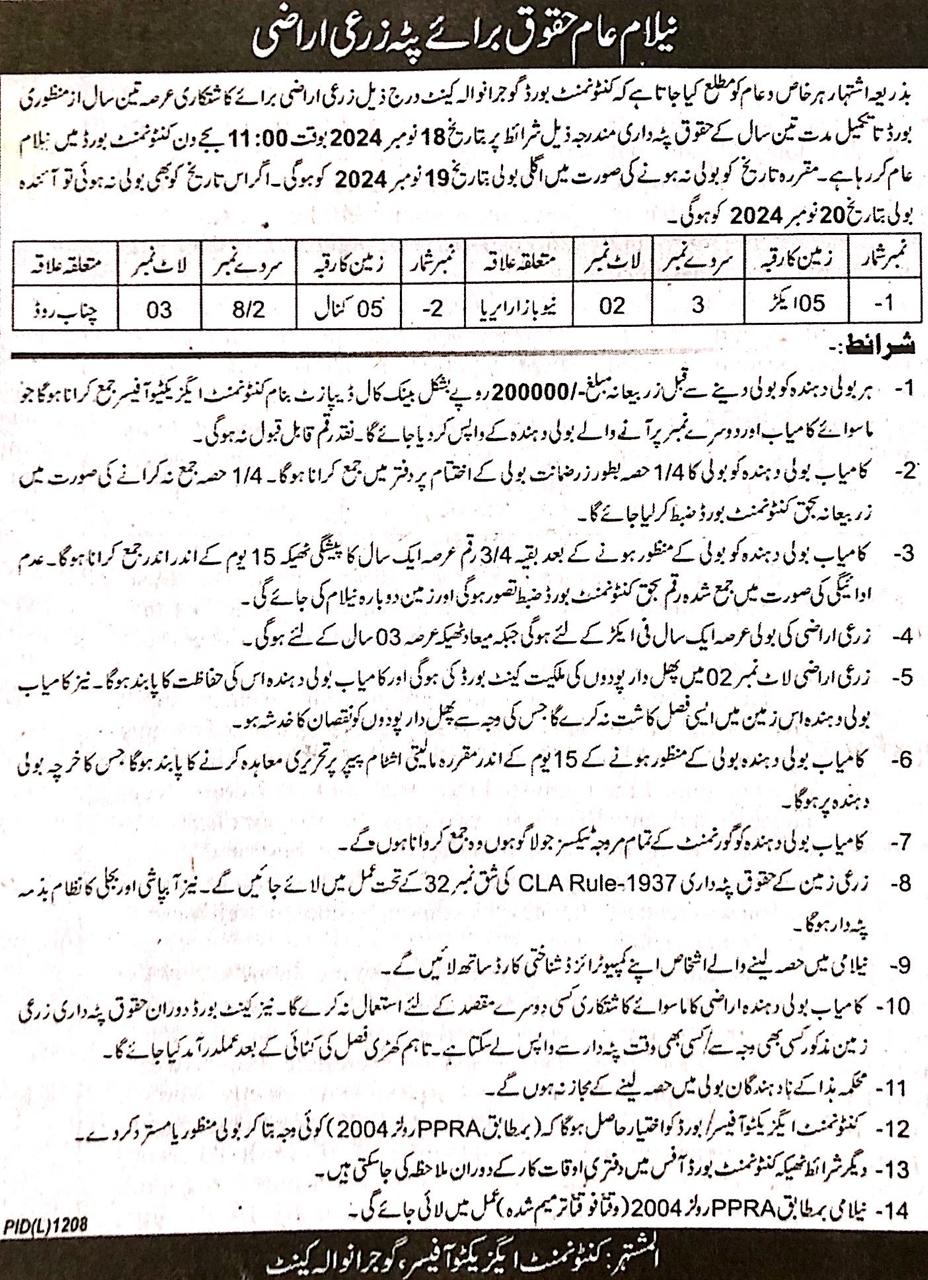 نیلام عام حقوق برائے پٹہ زرعی اراضی
بذریعہ اشتہار ہر خاص و عام کو مطلع کیا جاتا ہے کہ کنٹونمنٹ بورڈ گوجرانوالہ کینٹ درج ذیل زرعی اراضی برائے کاشتکاری عرصہ تین سال از منظوری
بورڈ تا تکمیل مدت تین سال کے حقوق پٹہ داری مندرجہ ذیل شرائط پر بتاریخ 18 نومبر 2024 بوقت 11:00 بجے دن کنٹونمنٹ بورڈ میں نیلام
عام کر رہا ہے۔ مقررہ تاریخ کو بولی نہ ہونے کی صورت میں اگلی بولی بتاریخ 19 نومبر 2024 کو ہوگی۔ اگر اس تاریخ کو بھی بولی نہ ہوئی تو آئندہ
بولی بتاریخ 20 نومبر 2024 کو ہوگی۔
نمبر شمار زمین کا رقبہ سروے نمبر لاٹ نمبر متعلقہ علاقہ نمبر شمار زمین کا رقبہ سروے نمبر لاٹ نمبر متعلقہ علاقہ
1- 05 ایکڑ 3 02 نیو بازار ایریا 2- 05 کنال 8/2 03 چناب روڈ
شرائط:-
1- ہر بولی دہندہ کو بولی دینے سے قبل زر بیعانہ مبلغ -/200000 روپے بشکل بینک کال ڈیپازٹ بنام کنٹونمنٹ ایگزیکٹو آفیسر جمع کرانا ہوگا جو
ماسوائے کامیاب اور دوسرے نمبر پر آنے والے بولی دہندہ کے واپس کر دیا جائے گا۔ نقد رقم قابل قبول نہ ہوگی۔
2- کامیاب بولی دہندہ کو بولی کا 1/4 حصہ بطور زر ضمانت بولی کے اختتام پر دفتر میں جمع کرانا ہوگا۔ 1/4 حصہ جمع نہ کرانے کی صورت میں
زر بیعانہ بحق کنٹونمنٹ بورڈ ضبط کر لیا جائے گا۔
3- کامیاب بولی دہندہ کو بولی کے منظور ہونے کے بعد بقیہ 3/4 رقم عرصہ ایک سال کا پیشگی ٹھیکہ 15 یوم کے اندر اندر جمع کرانا ہوگا۔ عدم
ادائیگی کی صورت میں جمع شدہ رقم بحق کنٹونمنٹ بورڈ ضبط تصور ہوگی اور زمین دوبارہ نیلام کی جائے گی۔
4- زرعی اراضی کی بولی عرصہ ایک سال فی ایکڑ کے لئے ہوگی جبکہ میعاد ٹھیکہ عرصہ 03 سال کے لئے ہوگی۔
5- زرعی اراضی لاٹ نمبر 02 میں پھل دار پودوں کی ملکیت کینٹ بورڈ کی ہوگی اور کامیاب بولی دہندہ اس کی حفاظت کا پابند ہوگا۔ نیز کامیاب
بولی دہندہ اس زمین میں ایسی فصل کاشت نہ کرے گا جس کی وجہ سے پھل دار پودوں کو نقصان کا خدشہ ہو۔
6- کامیاب بولی دہندہ بولی کے منظور ہونے کے 15 یوم کے اندر مقررہ مالیتی اشٹام پیپر پر تحریری معاہدہ کرنے کا پابند ہوگا جس کا خرچہ بولی
دہندہ پر ہوگا۔
7- کامیاب بولی دہندہ کو گورنمنٹ کے تمام مروجہ ٹیکسز جو لاگو ہوں وہ جمع کروانا ہوں گے۔
8- زرعی زمین کے حقوق پٹہ داری CLA Rule-1937 کی شق نمبر 32 کے تحت عمل میں لائے جائیں گے۔ نیز آبپاشی اور بجلی کا نظام بذمہ
پٹہ دار ہوگا۔
9- نیلامی میں حصہ لینے والے اشخاص اپنے کمپیوٹرائزڈ شناختی کارڈ ساتھ لائیں گے۔
10- کامیاب بولی دہندہ اراضی کا ماسوائے کاشتکاری کسی دوسرے مقصد کے لئے استعمال نہ کرے گا۔ نیز کینٹ بورڈ دوران حقوق پٹہ داری زرعی
زمین مذکور کسی بھی وجہ سے/کسی بھی وقت پٹہ دار سے واپس لے سکتا ہے۔ تاہم کھڑی فصل کی کٹائی کے بعد عملدرآمد کیا جائے گا۔
11- محکمہ ہذا کے نادہندگان بولی میں حصہ لینے کے مجاز نہ ہوں گے۔
12- کنٹونمنٹ ایگزیکٹو آفیسر/بورڈ کو اختیار حاصل ہوگا کہ (بمطابق PPRA رولز 2004) کوئی وجہ بتا کر بولی منظور یا مسترد کر دے۔
13- دیگر شرائط ٹھیکہ کنٹونمنٹ بورڈ آفس میں دفتری اوقات کار کے دوران ملاحظہ کی جا سکتی ہیں۔
14- نیلامی بمطابق PPRA رولز 2004 (وقتاً فوقتاً ترمیم شدہ) عمل میں لائی جائے گی۔
PID(L)1208
المشتہر: کنٹونمنٹ ایگزیکٹو آفیسر، گوجرانوالہ کینٹ